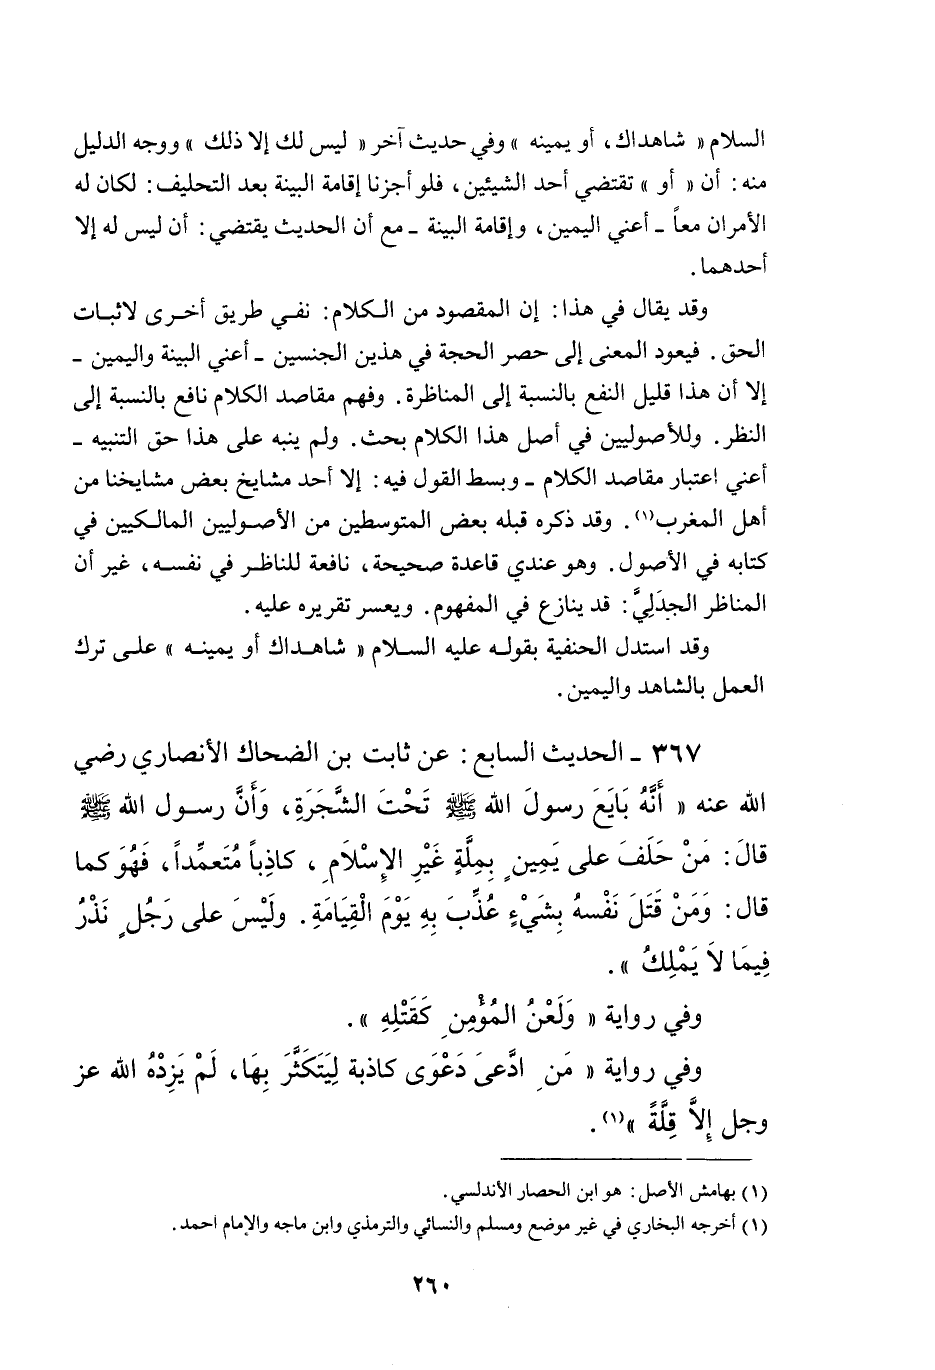 السلام « شاهداك، أو يمينه » وفي حديث آخر « ليس لك إلا ذلك » ووجه الدليل
منه: أن « أو » تقتضي أحد الشيئين، فلو أجزنا إقامة البينة بعد التحليف: لكان له
الأمران معاً ـ أعني اليمين، وإقامة البينة ـ مع أن الحديث يقتضي: أن ليس له إلا
أحدهما.
وقد يقال في هذا: إن المقصود من الكلام: نفي طريق أخرى لاثبات
الحق. فيعود المعنى إلى حصر الحجة في هذين الجنسين ـ أعني البينة واليمين ـ
إلا أن هذا قليل النفع بالنسبة إلى المناظرة. وفهم مقاصد الكلام نافع بالنسبة إلى
النظر. وللأصوليين في أصل هذا الكلام بحث. ولم ينبه على هذا حق التنبيه ـ
أعني اعتبار مقاصد الكلام ـ وبسط القول فيه: إلا أحد مشايخ بعض مشايخنا من
أهل المغرب(١). وقد ذكره قبله بعض المتوسطين من الأصوليين المالكيين في
كتابه في الأصول. وهو عندي قاعدة صحيحة، نافعة للناظر في نفسه، غير أن
المناظر الجدَلِيَّ: قد ينازع في المفهوم. ويعسر تقريره عليه.
وقد استدل الحنفية بقوله عليه السلام « شاهداك أو يمينه » على ترك
العمل بالشاهد واليمين.
٣٦٧ ـ الحديث السابع: عن ثابت بن الضحاك الأنصاري رضي
الله عنه « أَنَّهُ بَايَعَ رسولَ الله ﷺ تَحْتَ الشَّجَرَةِ، وَأَنَّ رسول الله ﷺ
قالَ: مَنْ حَلَفَ على يَمِينٍ بِمِلَّةٍ غَيْرِ الإِسْلَامِ، كاذِباً مُتَعمِّداً، فَهُوَ كما
قال: وَمَنْ قَتَلَ نَفْسهُ بِشَيْءٍ عُذِّبَ بِهِ يَوْمَ الْقِيَامَةِ. ولَيْسَ على رَجُلٍ نَذْرُ
فِيمَا لاَ يَمْلِكُ ».
وفي رواية « وَلَعْنُ المُؤْمِنِ كَقَتْلِهِ ».
وفي رواية « مَنِ ادَّعىَ دَعْوَى كاذبة لِيَتَكَثَّرَ بِهَا، لَمْ يَزِدْهُ الله عز
وجل إِلاَّ قِلَّةً »(١).
(١) بهامش الأصل: هو ابن الحصار الأندلسي.
(١) أخرجه البخاري في غير موضع ومسلم والنسائي والترمذي وابن ماجه والإمام احمد.
٢٦٠